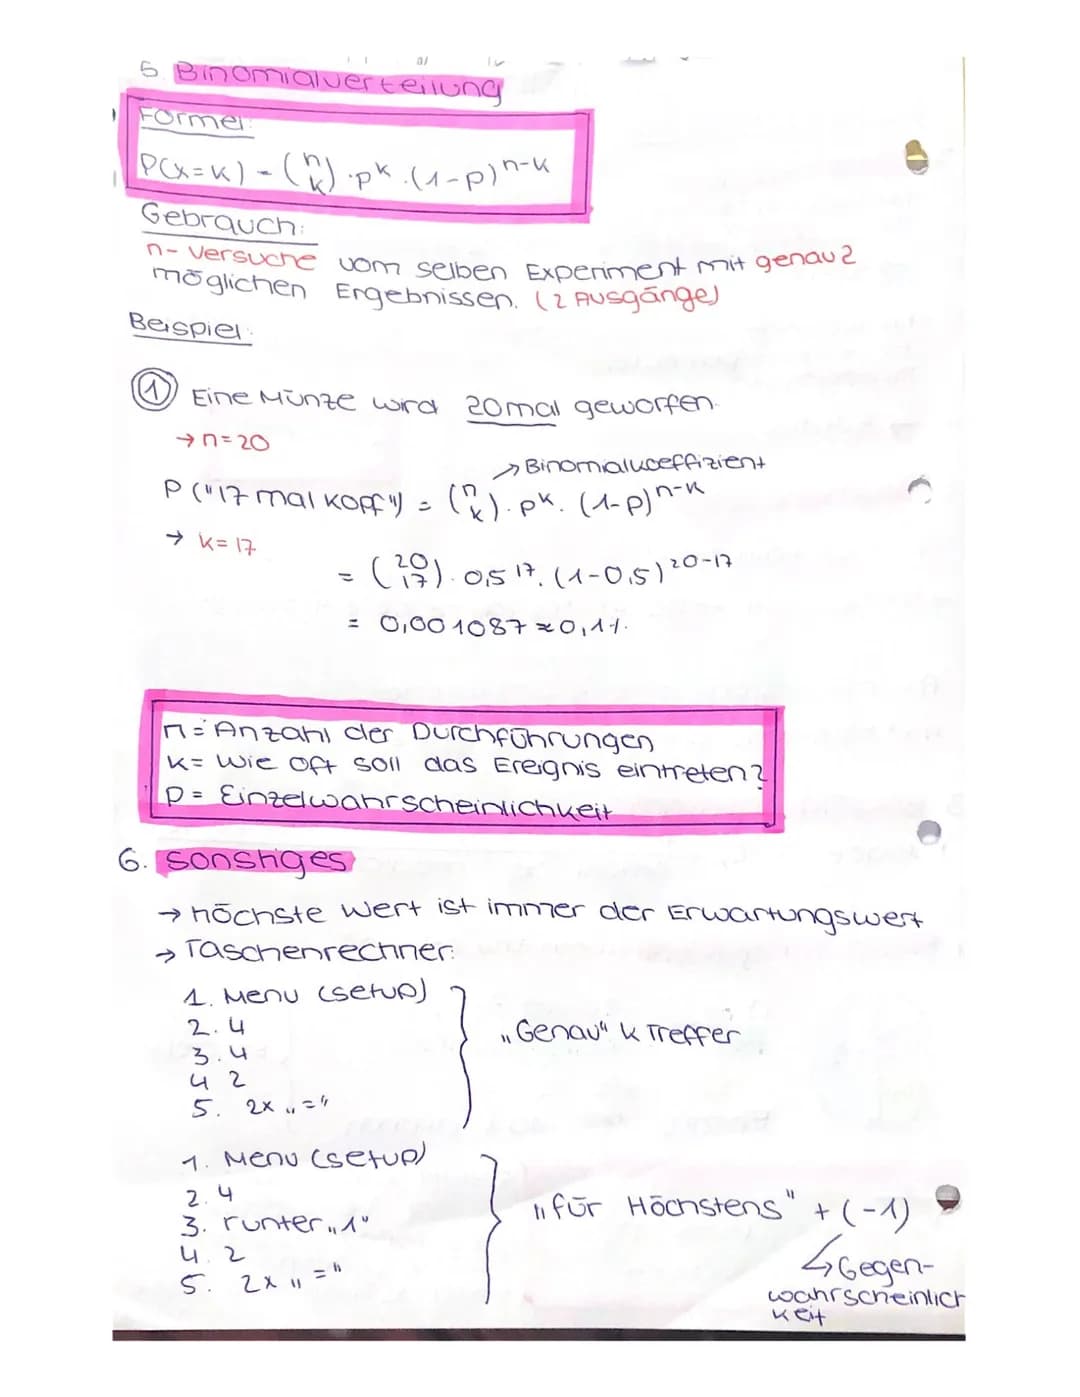 5. Binomialverteilung
Formel:
P(x=k) = (n k) · p^k · (1-p)^n-k
Gebrauch:
n- Versuche vom selben Experiment mit genau 2
möglichen Ergebnissen. (2 Ausgänge)
Beispiel:
① Eine Münze wird 20mal geworfen.
→ n=20
→ Binomialkoeffizient
P("17 mal Kopf") = (n k) · p^k · (1-p)^n-k
→ k=17
= (20 17) · 0,5^17 · (1-0,5)^20-17
= 0,001087 ≈ 0,1%
n = Anzahl der Durchführungen
k = Wie oft soll das Ereignis eintreten?
p = Einzelwahrscheinlichkeit
6. Sonstiges
→ höchste Wert ist immer der Erwartungswert
→ Taschenrechner:
1. Menu (setup)
2. 4
3. 4
4 2
5. 2x "="
"Genau" k Treffer
1. Menu (setup)
2. 4
3. runter "1"
4. 2
5. 2x "="
"für Höchstens" + (-1)
↳ Gegen-
wahrscheinlich
keit